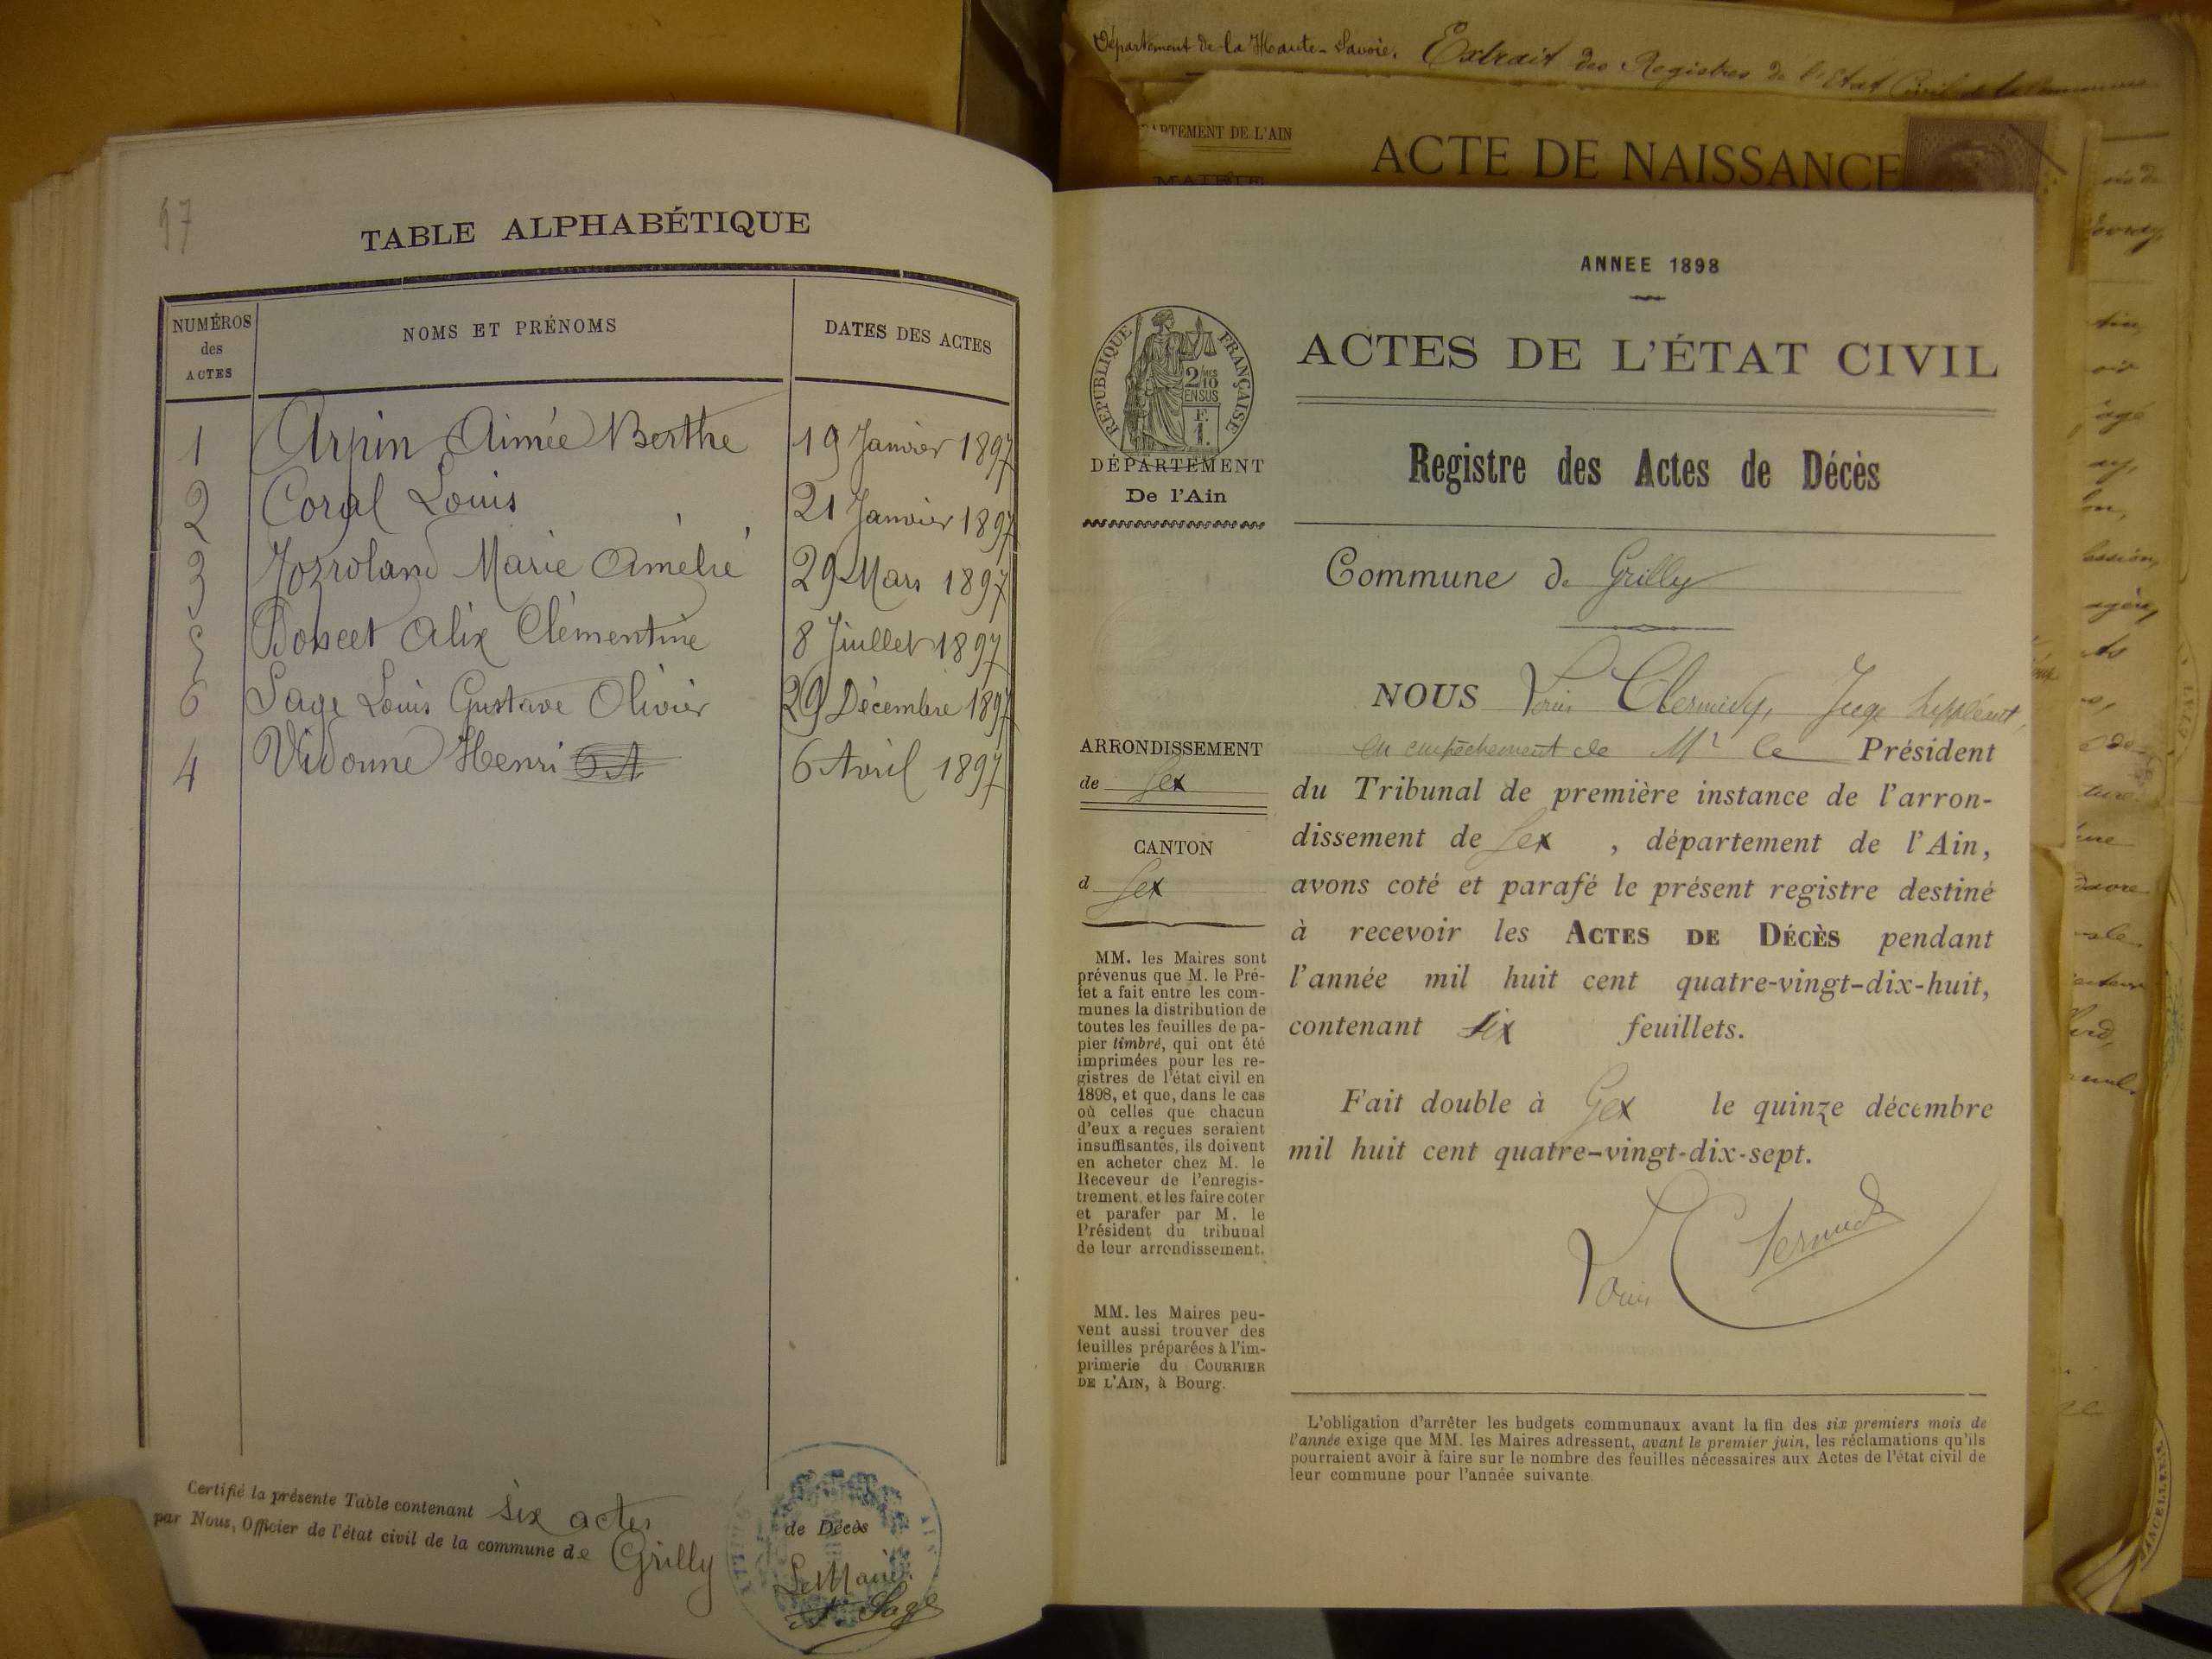 97
TABLE ALPHABÉTIQUE
NUMÉROS des ACTES NOMS ET PRÉNOMS DATES DES ACTES
1 Arpin Aimée Berthe 19 Janvier 1897
2 Coral Louis 21 Janvier 1897
3 Marie Amélie 29 Mars 1897
5 Alix Clémentine 8 Juillet 1897
6 Sage Louis Gustave Olivier 29 Décembre 1897
4 Vidonne Henri 6 Avril 1897
Certifié la présente Table contenant six actes de Décès
par Nous, Officier de l'état civil de la commune de Grilly
Le Maire
Sage
Département de la Haute-Savoie. Extrait des Registres de l'Etat Civil de la Commune
DÉPARTEMENT DE L'AIN
MAIRIE
ACTE DE NAISSANCE
ANNEE 1898
ACTES DE L'ÉTAT CIVIL
RÉPUBLIQUE FRANÇAISE
2/10
EN SUS
F.
1.
DÉPARTEMENT
De l'Ain
Registre des Actes de Décès
Commune de Grilly
ARRONDISSEMENT
de Gex
CANTON
d Gex
MM. les Maires sont
prévenus que M. le Pré-
fet a fait entre les com-
munes la distribution de
toutes les feuilles de pa-
pier timbré, qui ont été
imprimées pour les re-
gistres de l'état civil en
1898, et que, dans le cas
où celles que chacun
d'eux a reçues seraient
insuffisantes, ils doivent
en acheter chez M. le
Receveur de l'enregis-
trement, et les faire coter
et parafer par M. le
Président du tribunal
de leur arrondissement.
MM. les Maires peu-
vent aussi trouver des
feuilles préparées à l'im-
primerie du COURRIER
DE L'AIN, à Bourg.
NOUS Louis Clermidy, Juge suppléant,
en empêchement de Mr le Président
du Tribunal de première instance de l'arron-
dissement de Gex , département de l'Ain,
avons coté et parafé le présent registre destiné
à recevoir les ACTES DE DÉCÈS pendant
l'année mil huit cent quatre-vingt-dix-huit,
contenant six feuillets.
Fait double à Gex le quinze décembre
mil huit cent quatre-vingt-dix-sept.
Louis Clermidy
L'obligation d'arrêter les budgets communaux avant la fin des six premiers mois de
l'année exige que MM. les Maires adressent, avant le premier juin, les réclamations qu'ils
pourraient avoir à faire sur le nombre des feuilles nécessaires aux Actes de l'état civil de
leur commune pour l'année suivante.